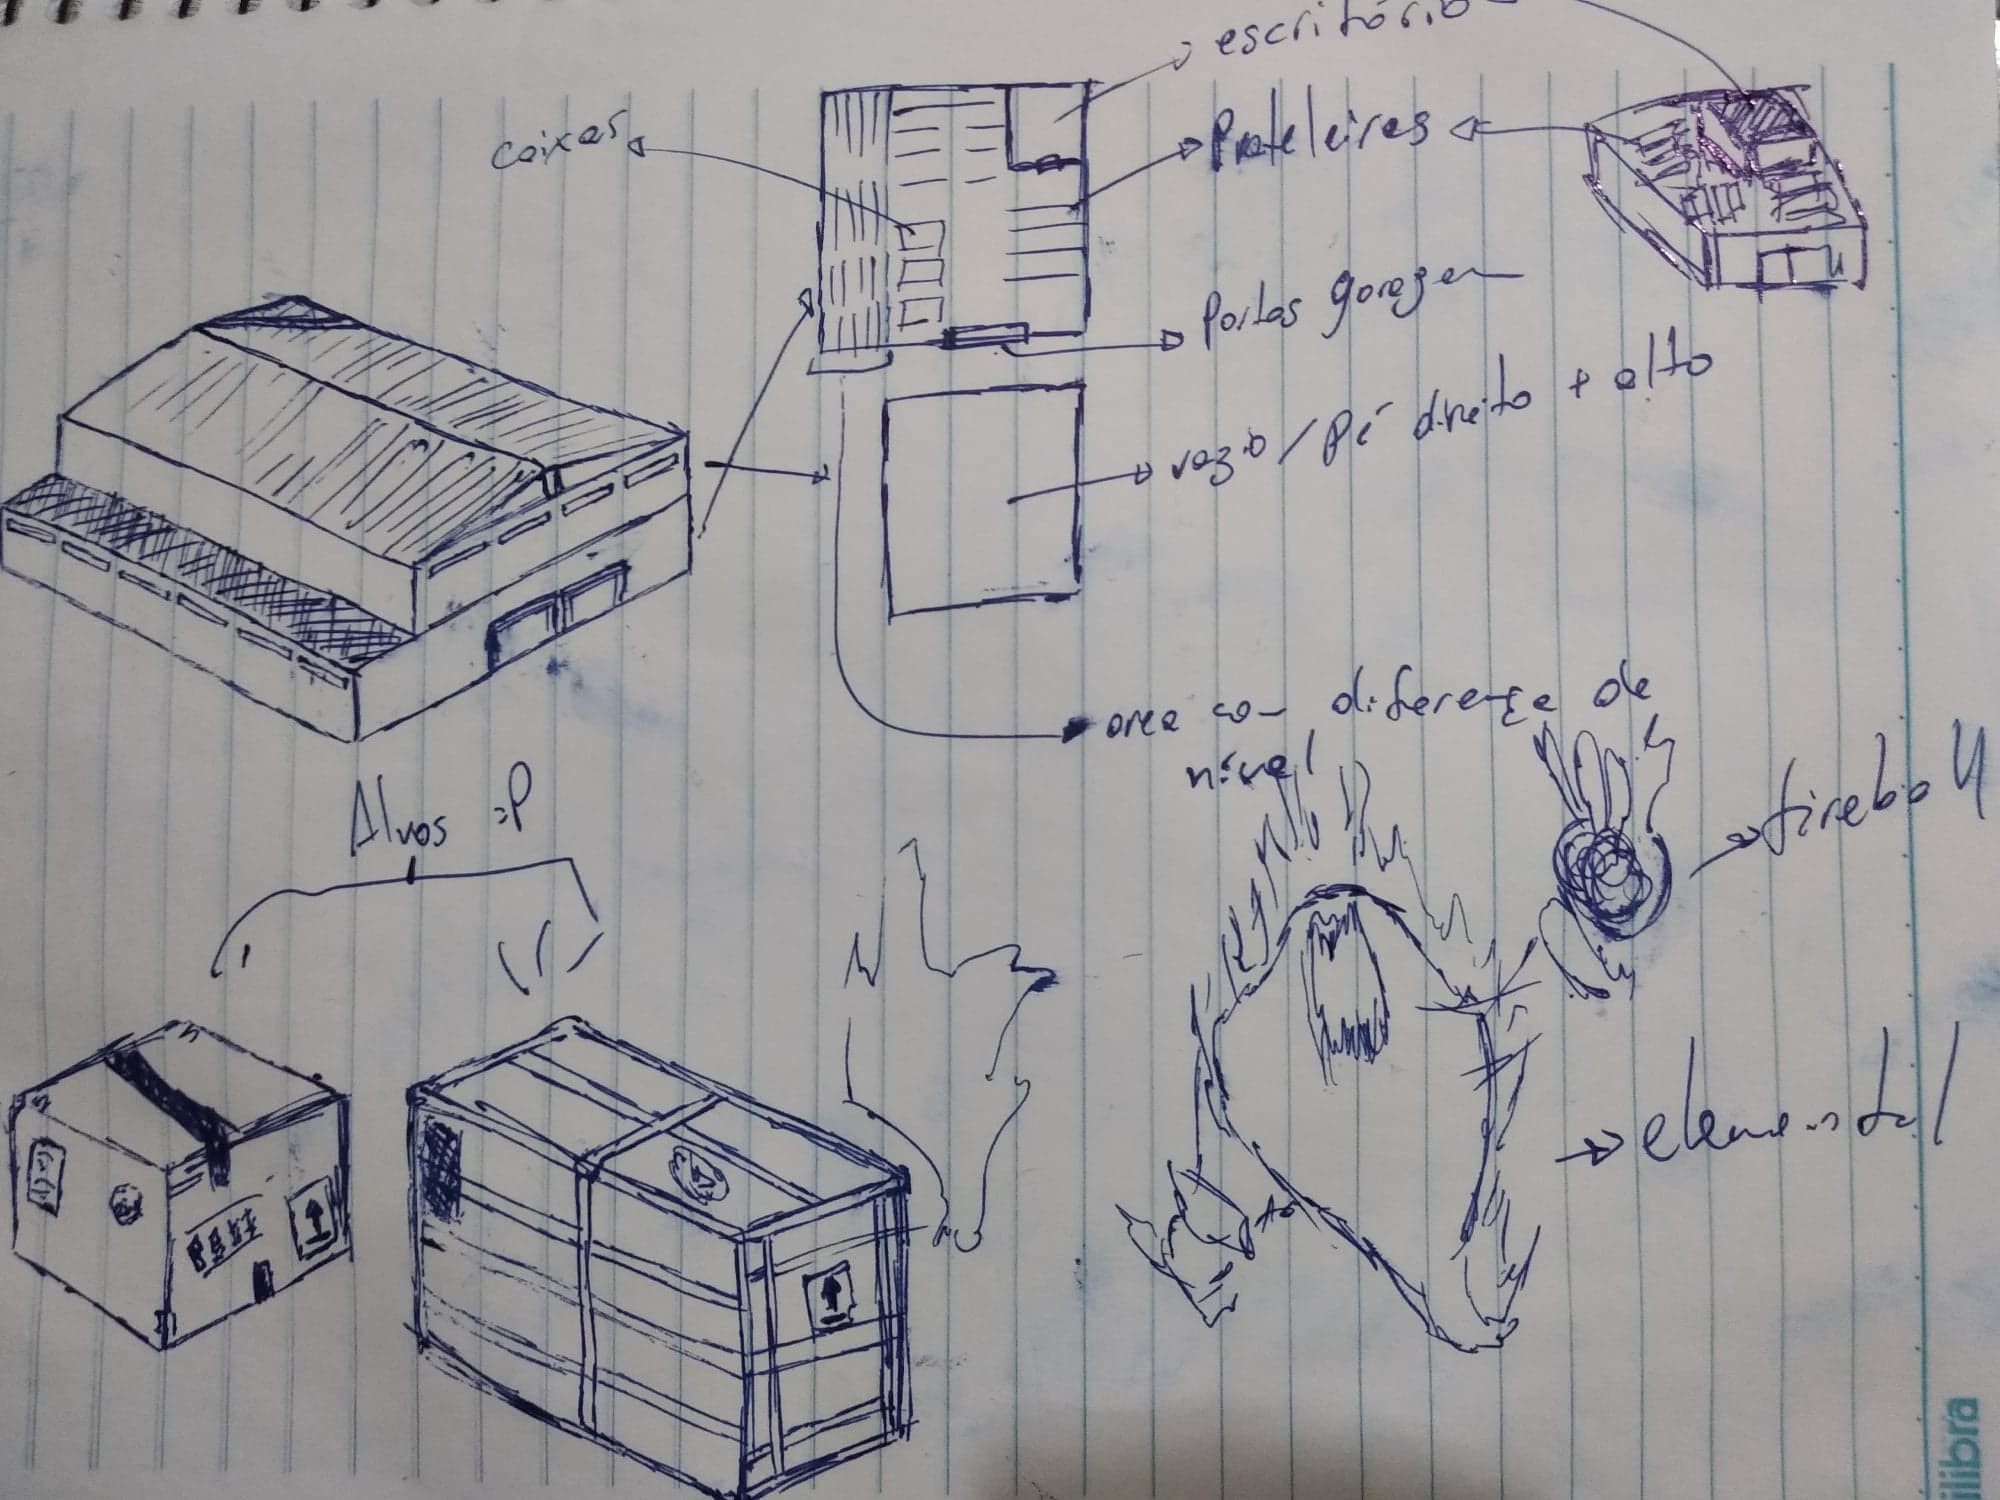 escritório
caixas
Prateleiras
Portas garagem
vazio / Pé direito + alto
area com diferença de
nível
Alvos =P
fireball
elemental
ilibra